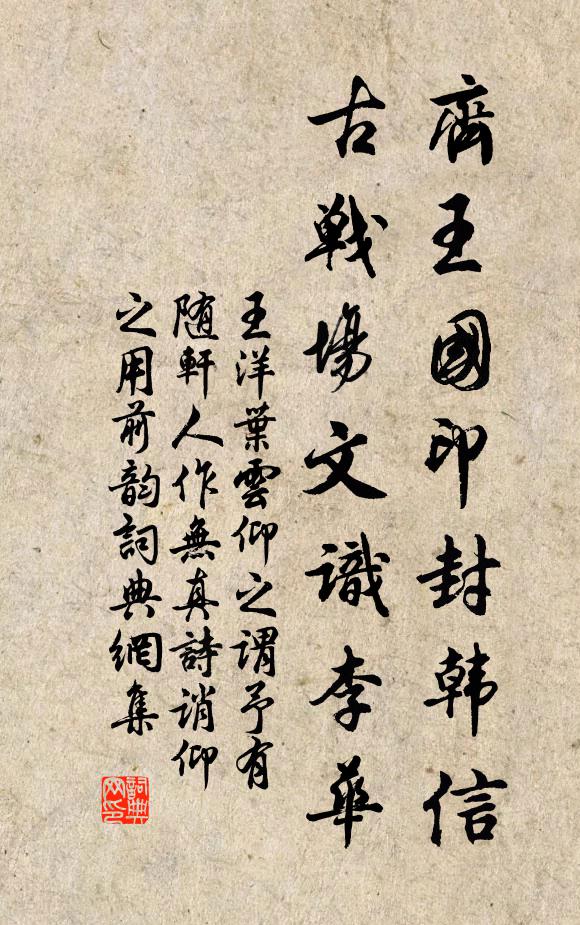 齊王國印封韩信
古戦場文識李華
王洋葉雲仰之謂予有
随軒人作無真詩誚仰
之用前韵詞典網集
詞典
网印